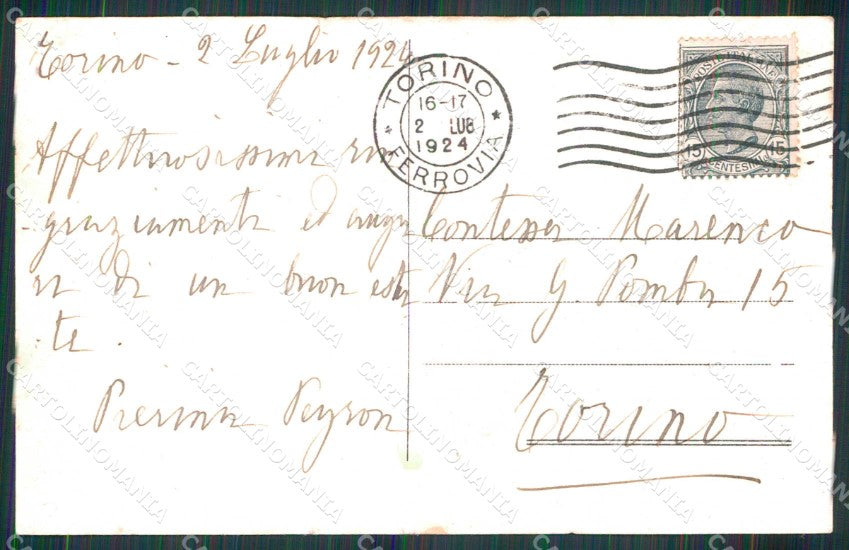 Torino - 2 Luglio 1924
Affettuosissimi rin
-graziamenti ed augu
ri di un buon esta
-te.
Pierina Peyron
TORINO
16-17
2 LUG
1924
FERROVIA
POSTE ITALIANE
15 15
CENTESIMI
Contessa Marenco
Via G. Pomba 15
Torino
CARTOLINOMANIA